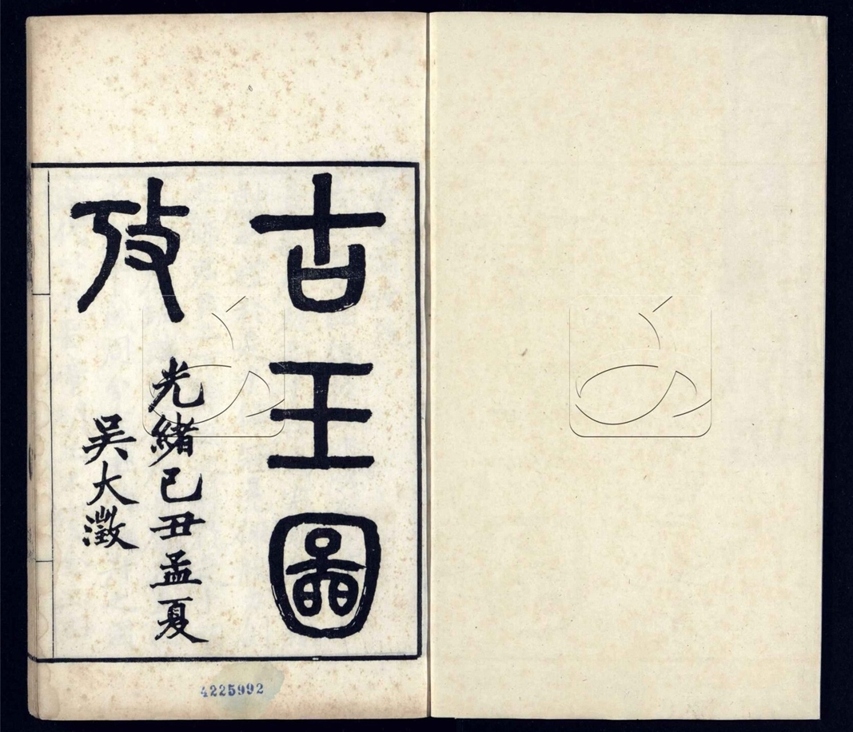 古玉圖
攷
光緒己丑孟夏
吳大澂
4225992